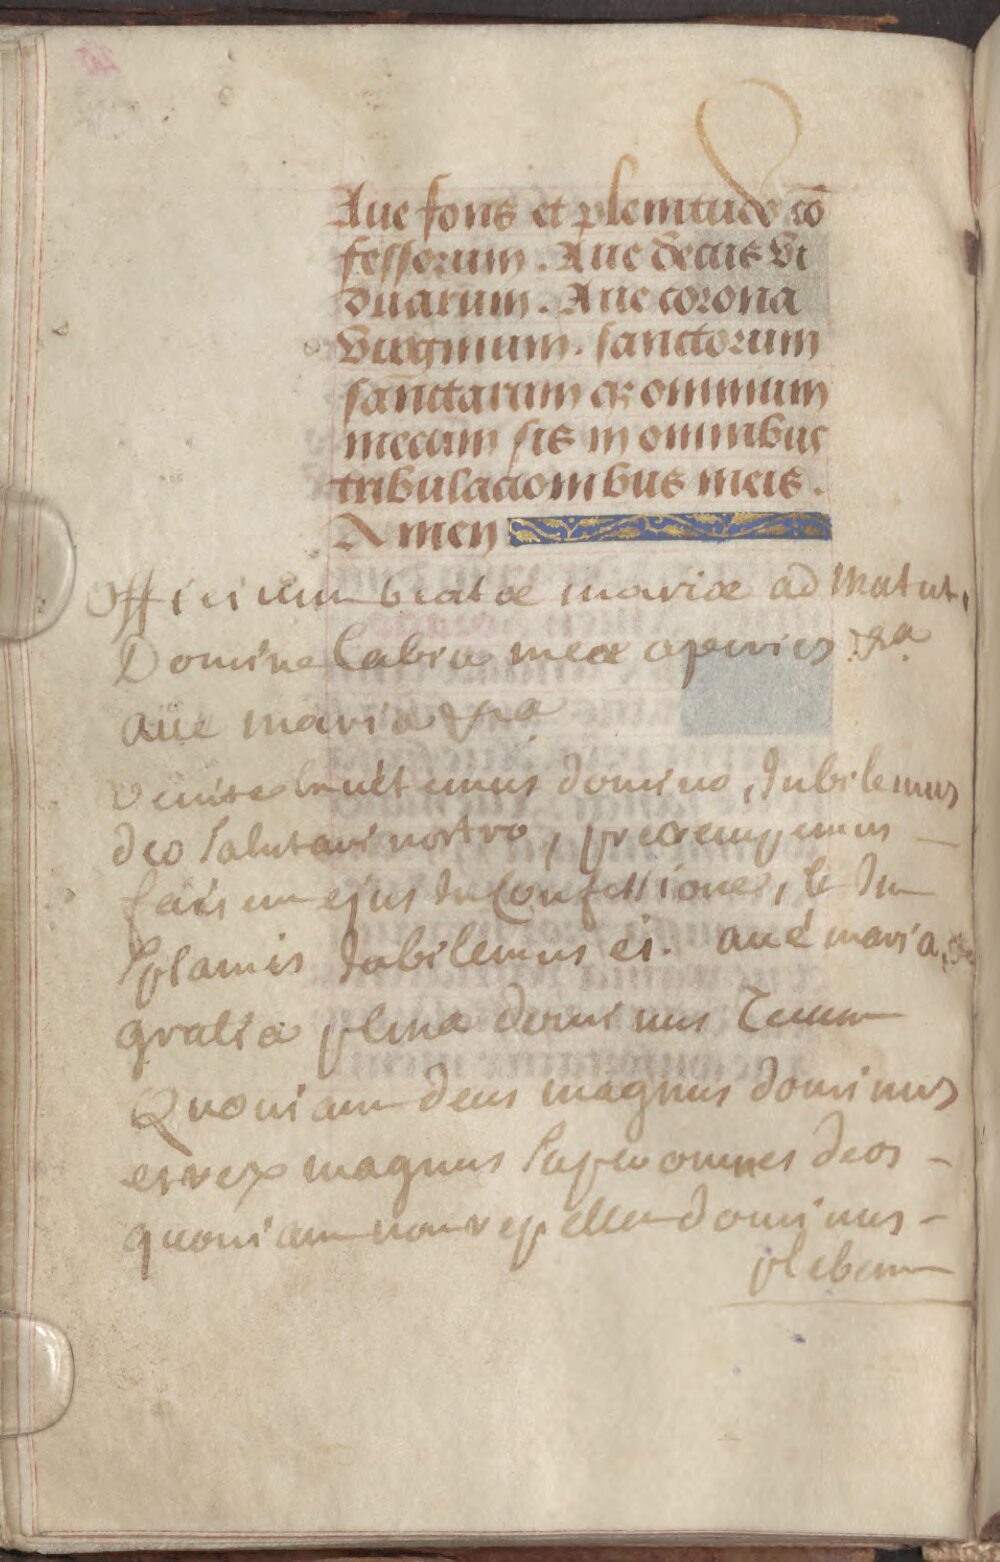 Aue fons et plenitudo cō
fessorum. Aue decus vi
duarum. Aue corona
virginum. sanctorum
sanctarum q; omnium
mecum sis in omnibus
tribulacionibus meis.
Amen
Officium beatae mariae ad Matut.
Domine labia mea aperies &ra
aue maria &ra
venite exultemus domino, Jubilemus
deo salutari nostro, praeocupemus
faciem ejus in confessione, & in
psalmis Jubilemus ei. aué maria,
gratia plena dominus Tecum
Quoniam deus magnus dominus
et rex magnus super omnes deos
quoniam non repellet dominus
plebem